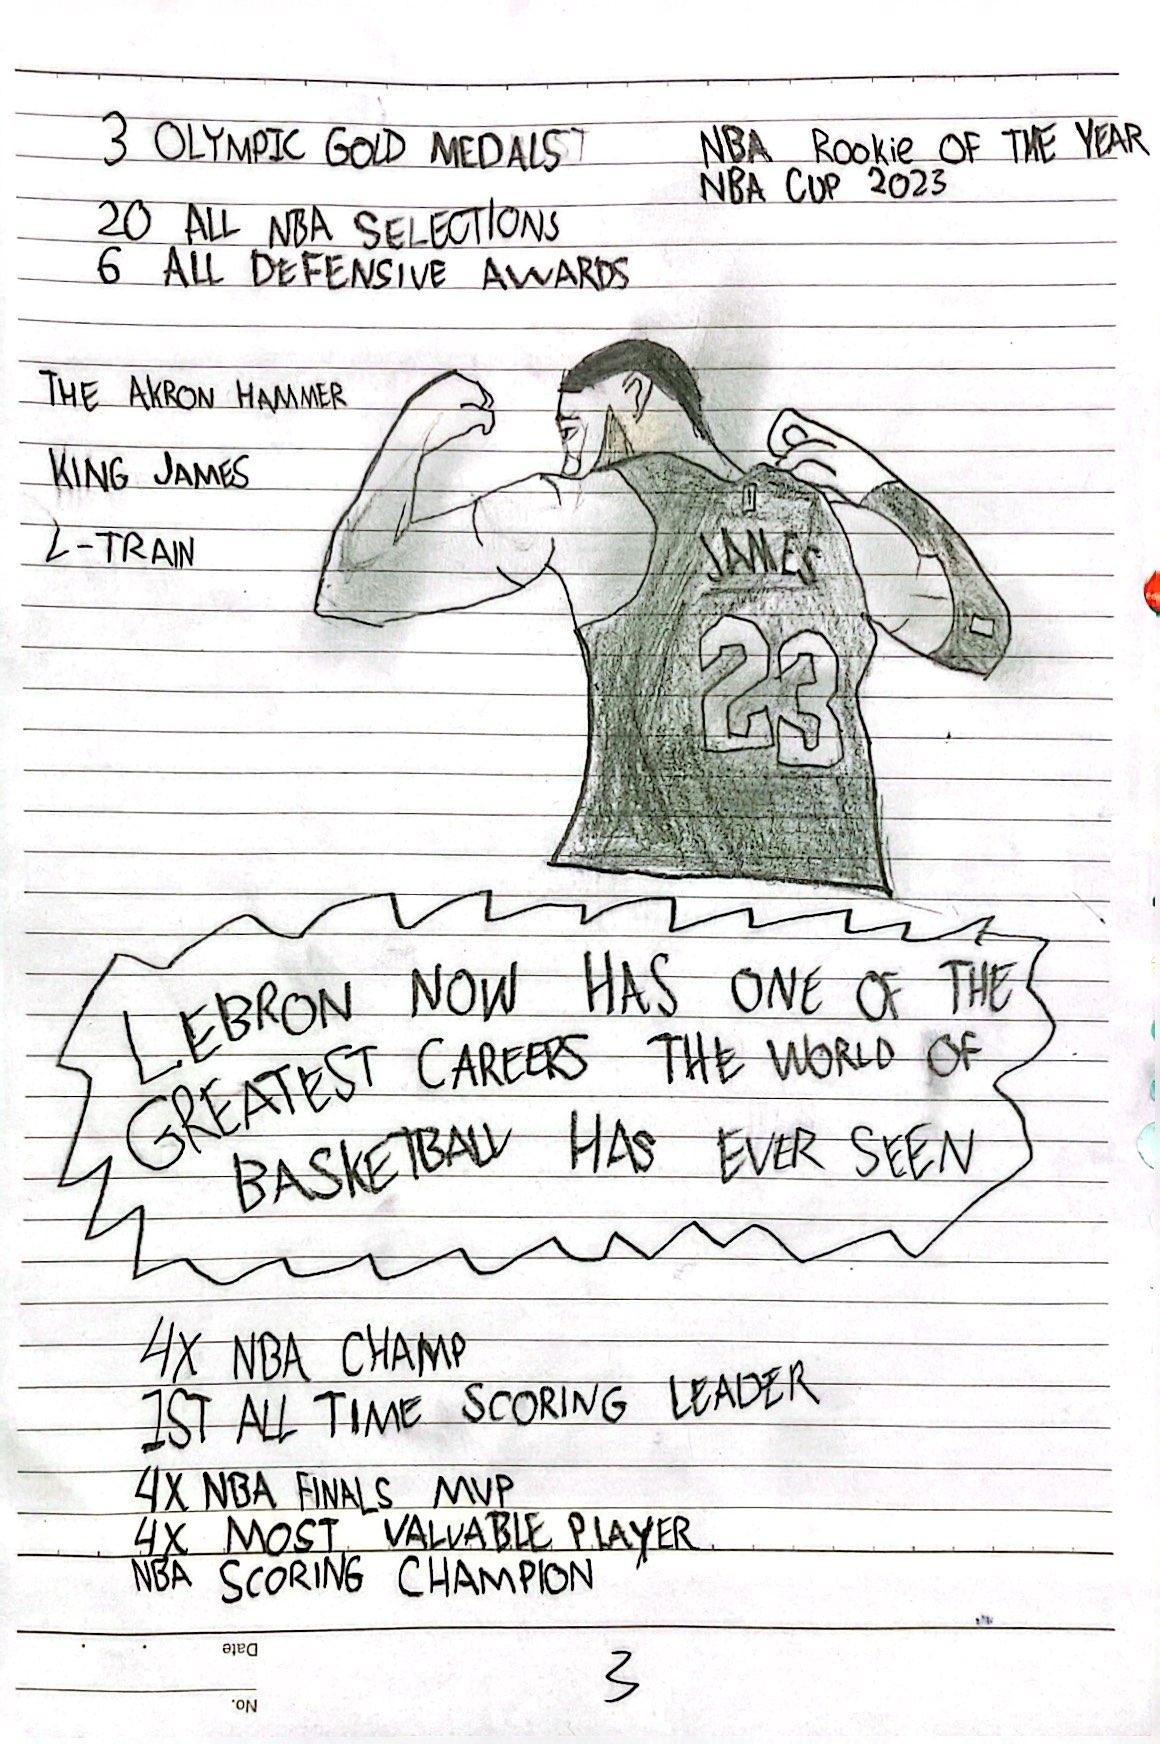 3 OLYMPIC GOLD MEDALS
NBA Rookie OF THE YEAR
NBA CUP 2023
20 ALL NBA SELECTIONS
6 ALL DEFENSIVE AWARDS
THE AKRON HAMMER
KING JAMES
L-TRAIN
JAMES
23
LEBRON NOW HAS ONE OF THE
GREATEST CAREERS THE WORLD OF
BASKETBALL HAS EVER SEEN
4X NBA CHAMP
1ST ALL TIME SCORING LEADER
4X NBA FINALS MVP
4X MOST VALUABLE PLAYER
NBA SCORING CHAMPION
3
Date
No.